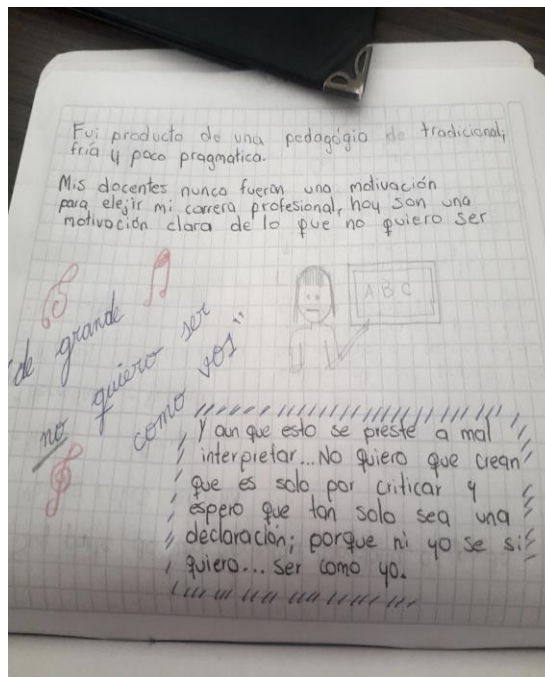 Fui producto de una pedagógia de tradicional,
fría y poco pragmatica.
Mis docentes nunca fueron una motivación
para elejir mi carrera profesional, hoy son una
motivación clara de lo que no quiero ser
"de grande
no quiero ser
como vos"
A B C
Y aun que esto se preste a mal
interpretar... No quiero que crean
que es solo por criticar y
espero que tan solo sea una
declaración; porque ni yo se si
quiero... ser como yo.